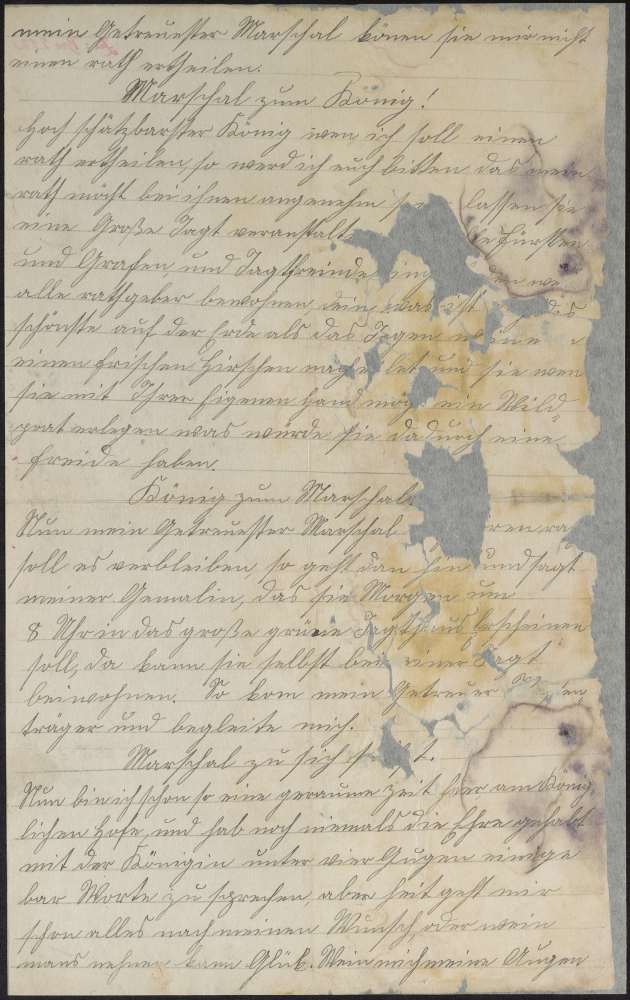 mein Getreuester Marschal könen sie mir nicht
einen rath ertheilen.
Marschal zum König!
Hoch schätzbarster König wen ich soll einen
rath ertheilen, so werd ich euch bitten das mein
rath möcht bei ihnen angenehm sei lassen sie
eine Große Jagt veranstalt le Fürsten
und Grafen und Jagtfreinde ein den we
alle rathgeber bewohnen, dein was ist das
schönste auf der Erde als das Jagen w eine
einen frischen Hirschen nach let und sie wen
sie mit Ihrer Eigenen Hand mög ein Wild-
prat erlegen was würde sie dadurch eine
freide haben.
König zum Marschal.
Nun mein Getreuester Marschal ren ra
soll es verbleiben, so geht dan hin und sagt
meiner Gemalin, das sie Morgen um
8 Uhr in das große grüne Jagthaus Erscheinen
soll, da kann sie selbst bei einer Jagt
beiwohnen. So kom mein Getreuer
träger und begleite mich.
Marschal zu sich s t.
Nun bin ich schon so eine geraume Zeit hier am König-
lichen Hofe, und hab noch niemals die Ehre gehabt
mit der Königin unter vier Augen einige
bar Worte zu sprechen, aber heit geht mir
schon alles nach meinen Wunsch, oder wein
mans nehmen kann Glük. Wein mich meine Augen